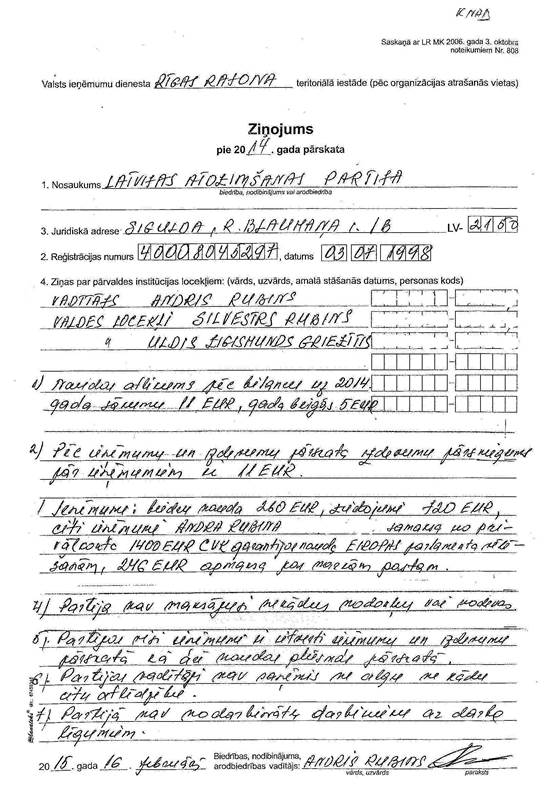 KNAB
Saskaņā ar LR MK 2006. gada 3. oktobra
noteikumiem Nr. 808
Valsts ieņēmumu dienesta RĪGAS RAJONA teritoriālā iestāde (pēc organizācijas atrašanās vietas)
Ziņojums
pie 2014. gada pārskata
1. Nosaukums LATVIJAS ATDZIMŠANAS PARTIJA
biedrība, nodibinājums vai arodbiedrība
3. Juridiskā adrese SIGULDA, R. BLAUMAŅA i. 1B LV- 2150
2. Reģistrācijas numurs 40008045297, datums 03 07 1998
4. Ziņas par pārvaldes institūcijas locekļiem: (vārds, uzvārds, amatā stāšanās datums, personas kods)
VADĪTĀJS ANDRIS RUBINS
VALDES LOCEKĻI SILVESTRS RUBINS
" ULDIS ZIGISMUNDS GRIEZĪTIS
1) Naudas atlikums pēc bilances uz 2014.
gada sākumu 11 EUR, gada beigās 5 EUR
2) Pēc ieņēmumu un izdevumu pārskata izdevumu pārsniegums
pār ieņēmumiem ir 11 EUR.
Ieņēmumi: biedru nauda 260 EUR, ziedojumi 720 EUR,
citi ieņēmumi ANDRA RUBINA samaksa no pri-
vātkonta 1400 EUR CVK garantijas nauda EIROPAS parlamenta vēlē-
šanām, 246 EUR apmaksa par
4) Partija nav maksājusi nekādus nodokļus vai nodevas
5). Partijas visi ieņēmumi ir uzrādīti ieņēmumu un izdevumu
pārskatā kā arī naudas plūsmas pārskatā.
6). Partijas vadītāji nav saņēmis ne algu ne kādu
citu atlīdzību.
7). Partijā nav nodarbināts darbinieks uz darba
līgumiem.
2015. gada 16. februārī Biedrības, nodibinājuma,
arodbiedrības vadītājs: ANDRIS RUBINS
vārds, uzvārds paraksts